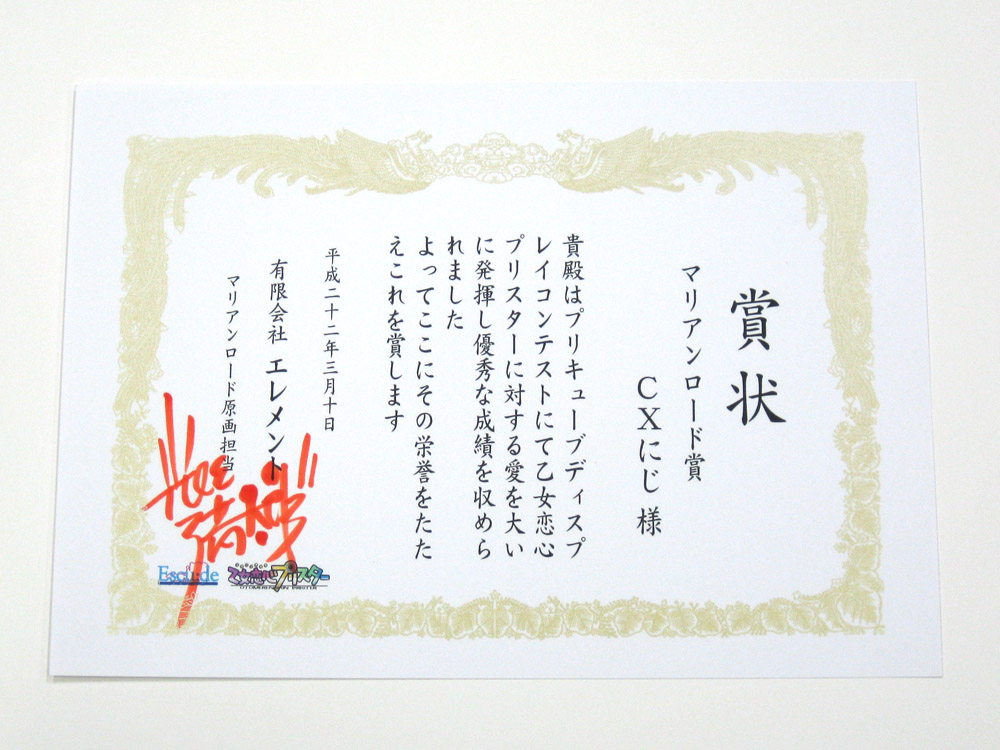 賞状
マリアンロード賞
CXにじ 様
貴殿はプリキューブディスプ
レイコンテストにて乙女恋心
プリスターに対する愛を大い
に発揮し優秀な成績を収めら
れました
よってここにその栄誉をたた
えこれを賞します
平成二十二年三月十日
有限会社 エレメント
マリアンロード原画担当
Escu:de
乙女恋心プリスター